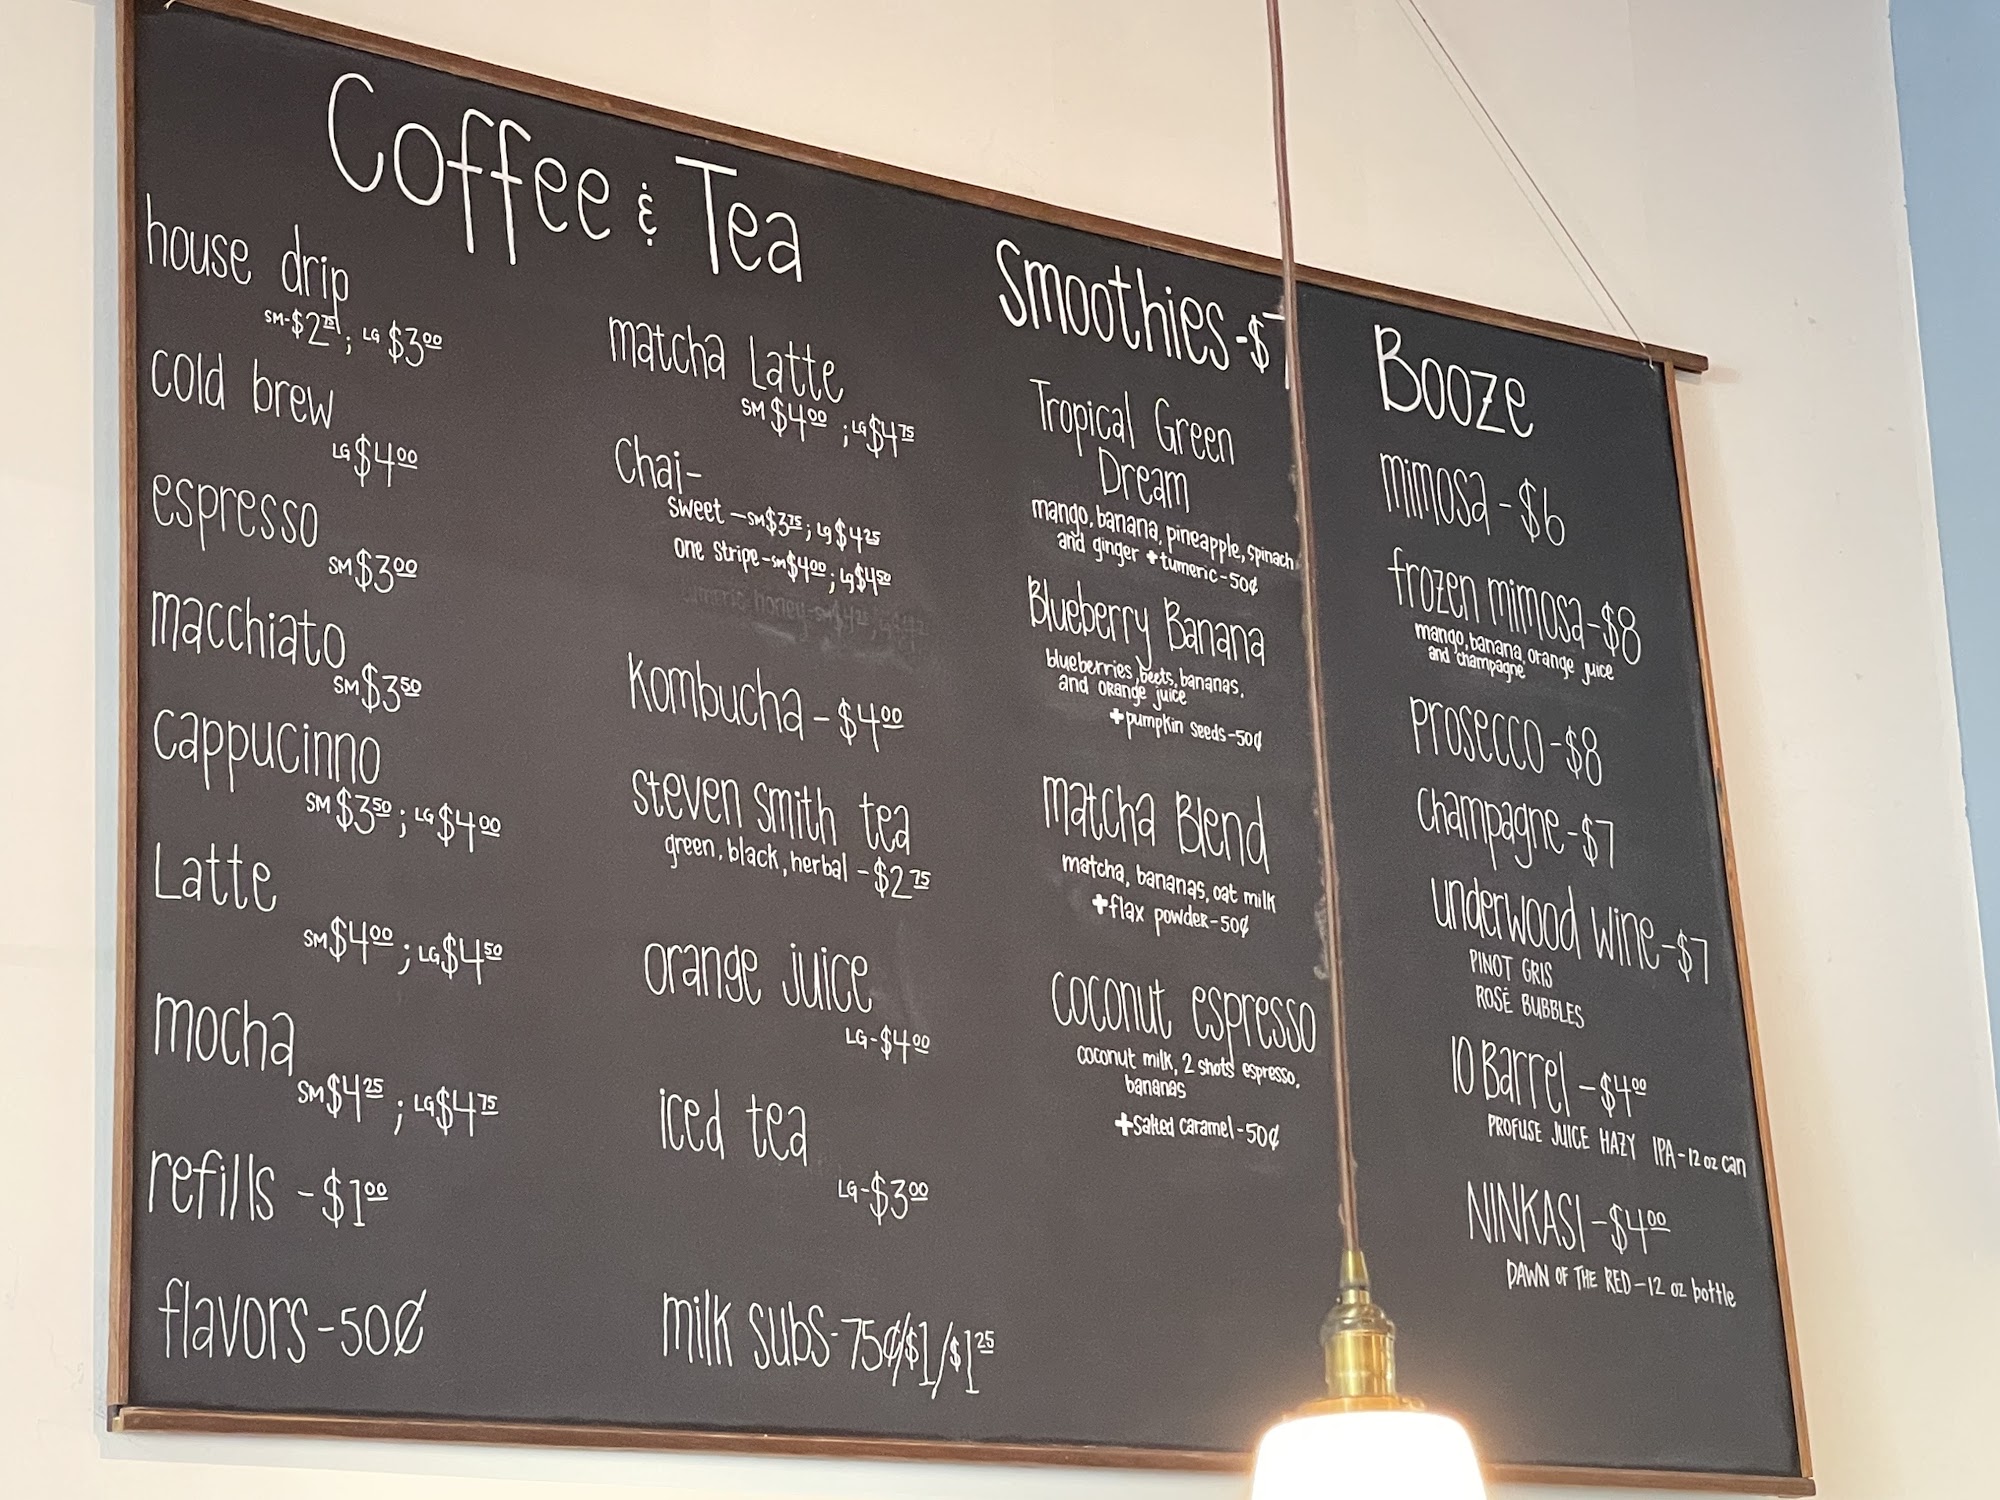 Coffee & Tea
house drip
SM-$2.75; LG $3.00
cold brew
LG $4.00
espresso
SM $3.00
macchiato
SM $3.50
cappucinno
SM $3.50; LG $4.00
Latte
SM $4.00; LG $4.50
mocha
SM $4.25; LG $4.75
refills - $1.00
flavors - 50¢
matcha Latte
SM $4.00; LG $4.75
Chai-
sweet - SM $3.75; LG $4.25
one stripe - SM $4.00; LG $4.50
Kombucha - $4.00
steven smith tea
green, black, herbal - $2.75
orange juice
LG - $4.00
iced tea
LG - $3.00
milk subs - 75¢/$1/$1.25
Smoothies - $7
Tropical Green
Dream
mango, banana, pineapple, spinach
and ginger + tumeric - 50¢
Blueberry Banana
blueberries, beets, bananas,
and orange juice
+ pumpkin seeds - 50¢
matcha Blend
matcha, bananas, oat milk
+ flax powder - 50¢
coconut espresso
coconut milk, 2 shots espresso,
bananas
+ salted caramel - 50¢
Booze
mimosa - $6
frozen mimosa - $8
mango, banana, orange juice
and champagne
prosecco - $8
champagne - $7
underwood wine - $7
PINOT GRIS
ROSÉ BUBBLES
10 Barrel - $4.00
PROFUSE JUICE HAZY IPA - 12 oz can
NINKASI - $4.00
DAWN OF THE RED - 12 oz bottle